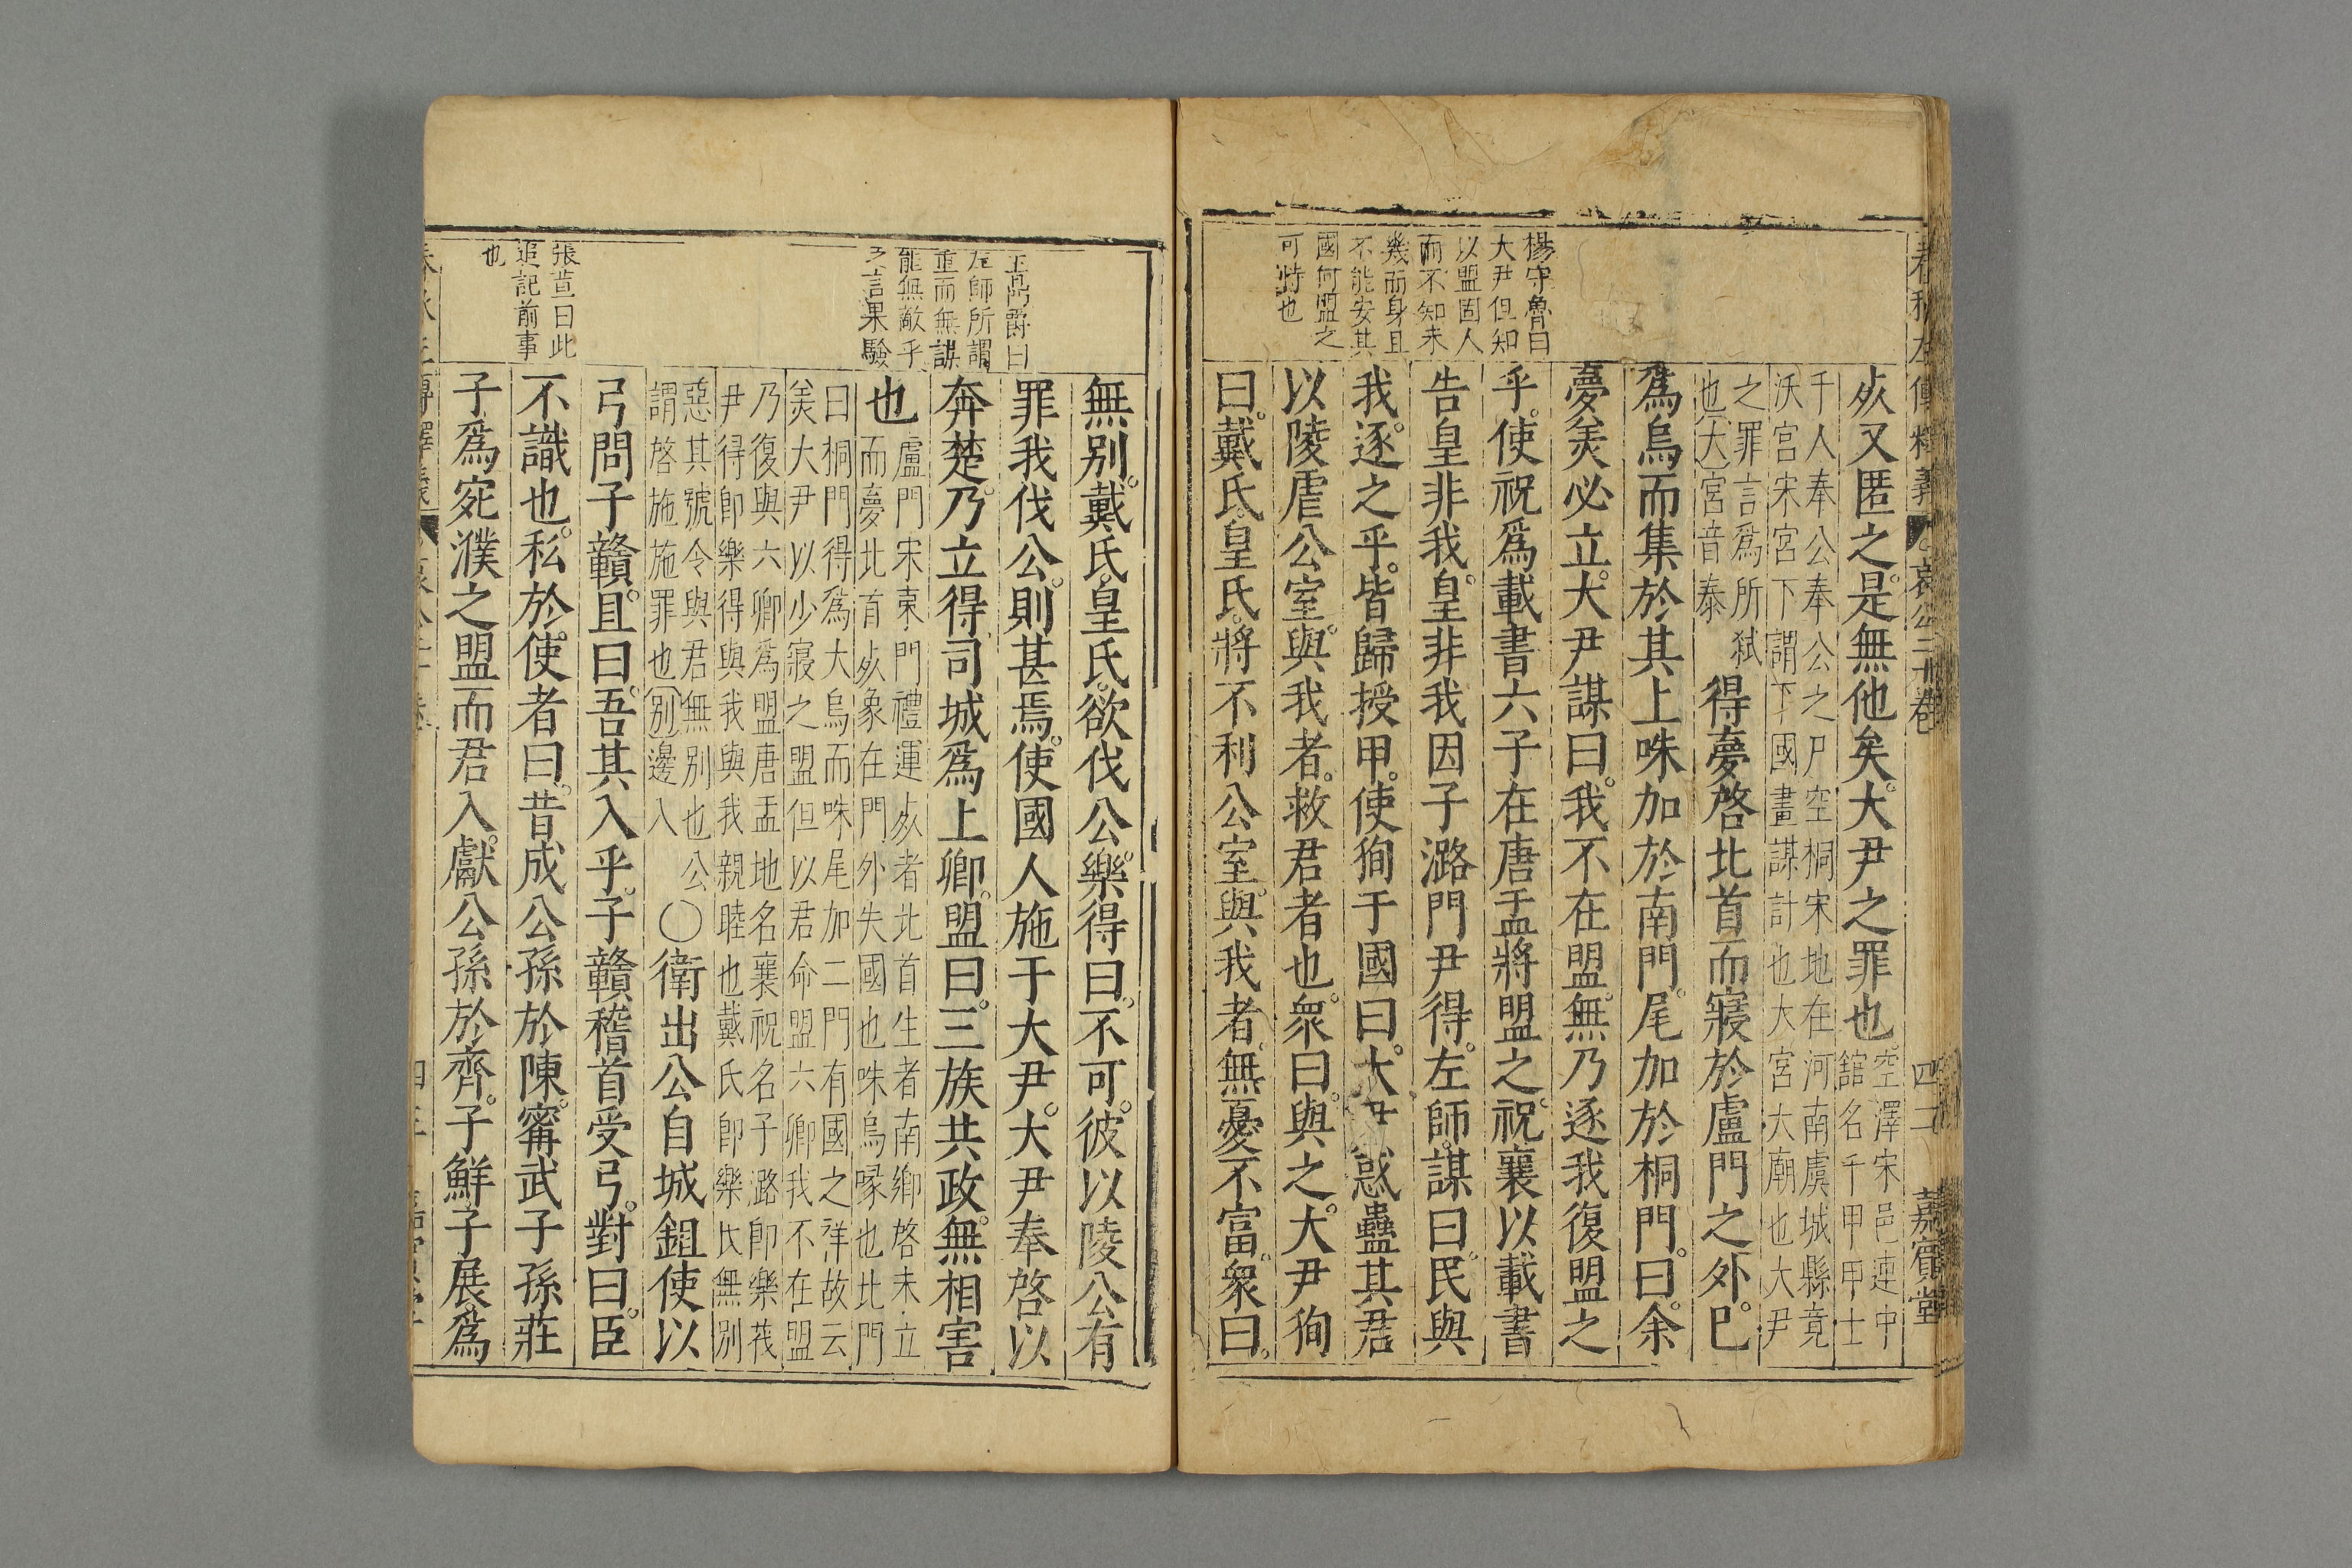 楊守魯曰
大尹但知
以盟固人
而不知未
幾而身且
不能安其
國何盟之
可恃也
死又匿之是無他矣大尹之罪也
空澤宋邑連中
舘名千甲甲士
千人奉公奉公之尸空桐宋地在河南虞城縣竟
沃宮宋宮下謂下國畫謀計也大宮大廟也大尹
之罪言爲所弑
也大宮音泰
得夢啓北首而寢於盧門之外已
爲烏而集於其上咮加於南門尾加於桐門曰余
夢羙必立大尹謀曰我不在盟無乃逐我復盟之
乎使祝爲載書六子在唐盂將盟之祝襄以載書
告皇非我皇非我因子潞門尹得左師謀曰民與
我逐之乎皆歸授甲使徇于國曰大尹惑蠱其君
以陵虐公室與我者救君者也衆曰與之大尹徇
曰戴氏皇氏將不利公室與我者無憂不富衆曰
王鼎爵曰
左師所謂
重而無謀
能無敵乎
之言果驗
張萱曰此
追記前事
也
無別戴氏皇氏欲伐公樂得曰不可彼以陵公有
罪我伐公則甚焉使國人施于大尹大尹奉啓以
奔楚乃立得司城爲上卿盟曰三族共政無相害
也
盧門宋東門禮運死者北首生者南鄉啓未立
而夢北首死象在門外失國也咮烏喙也北門
曰桐門得爲大烏而咮尾加二門有國之祥故云
羙大尹以少寢之盟但以君命盟六卿我不在盟
乃復與六卿爲盟唐盂地名襄祝名子潞卽樂茷
尹得卽樂得與我與我親睦也戴氏卽樂氏無別
惡其號令與君無別也公
謂啓施施罪也別邊入
〇衛出公自城鉏使以
弓問子贛且曰吾其入乎子贛稽首受弓對曰臣
不識也私於使者曰昔成公孫於陳甯武子孫莊
子爲宛濮之盟而君入獻公孫於齊子鮮子展爲
嘉賓堂